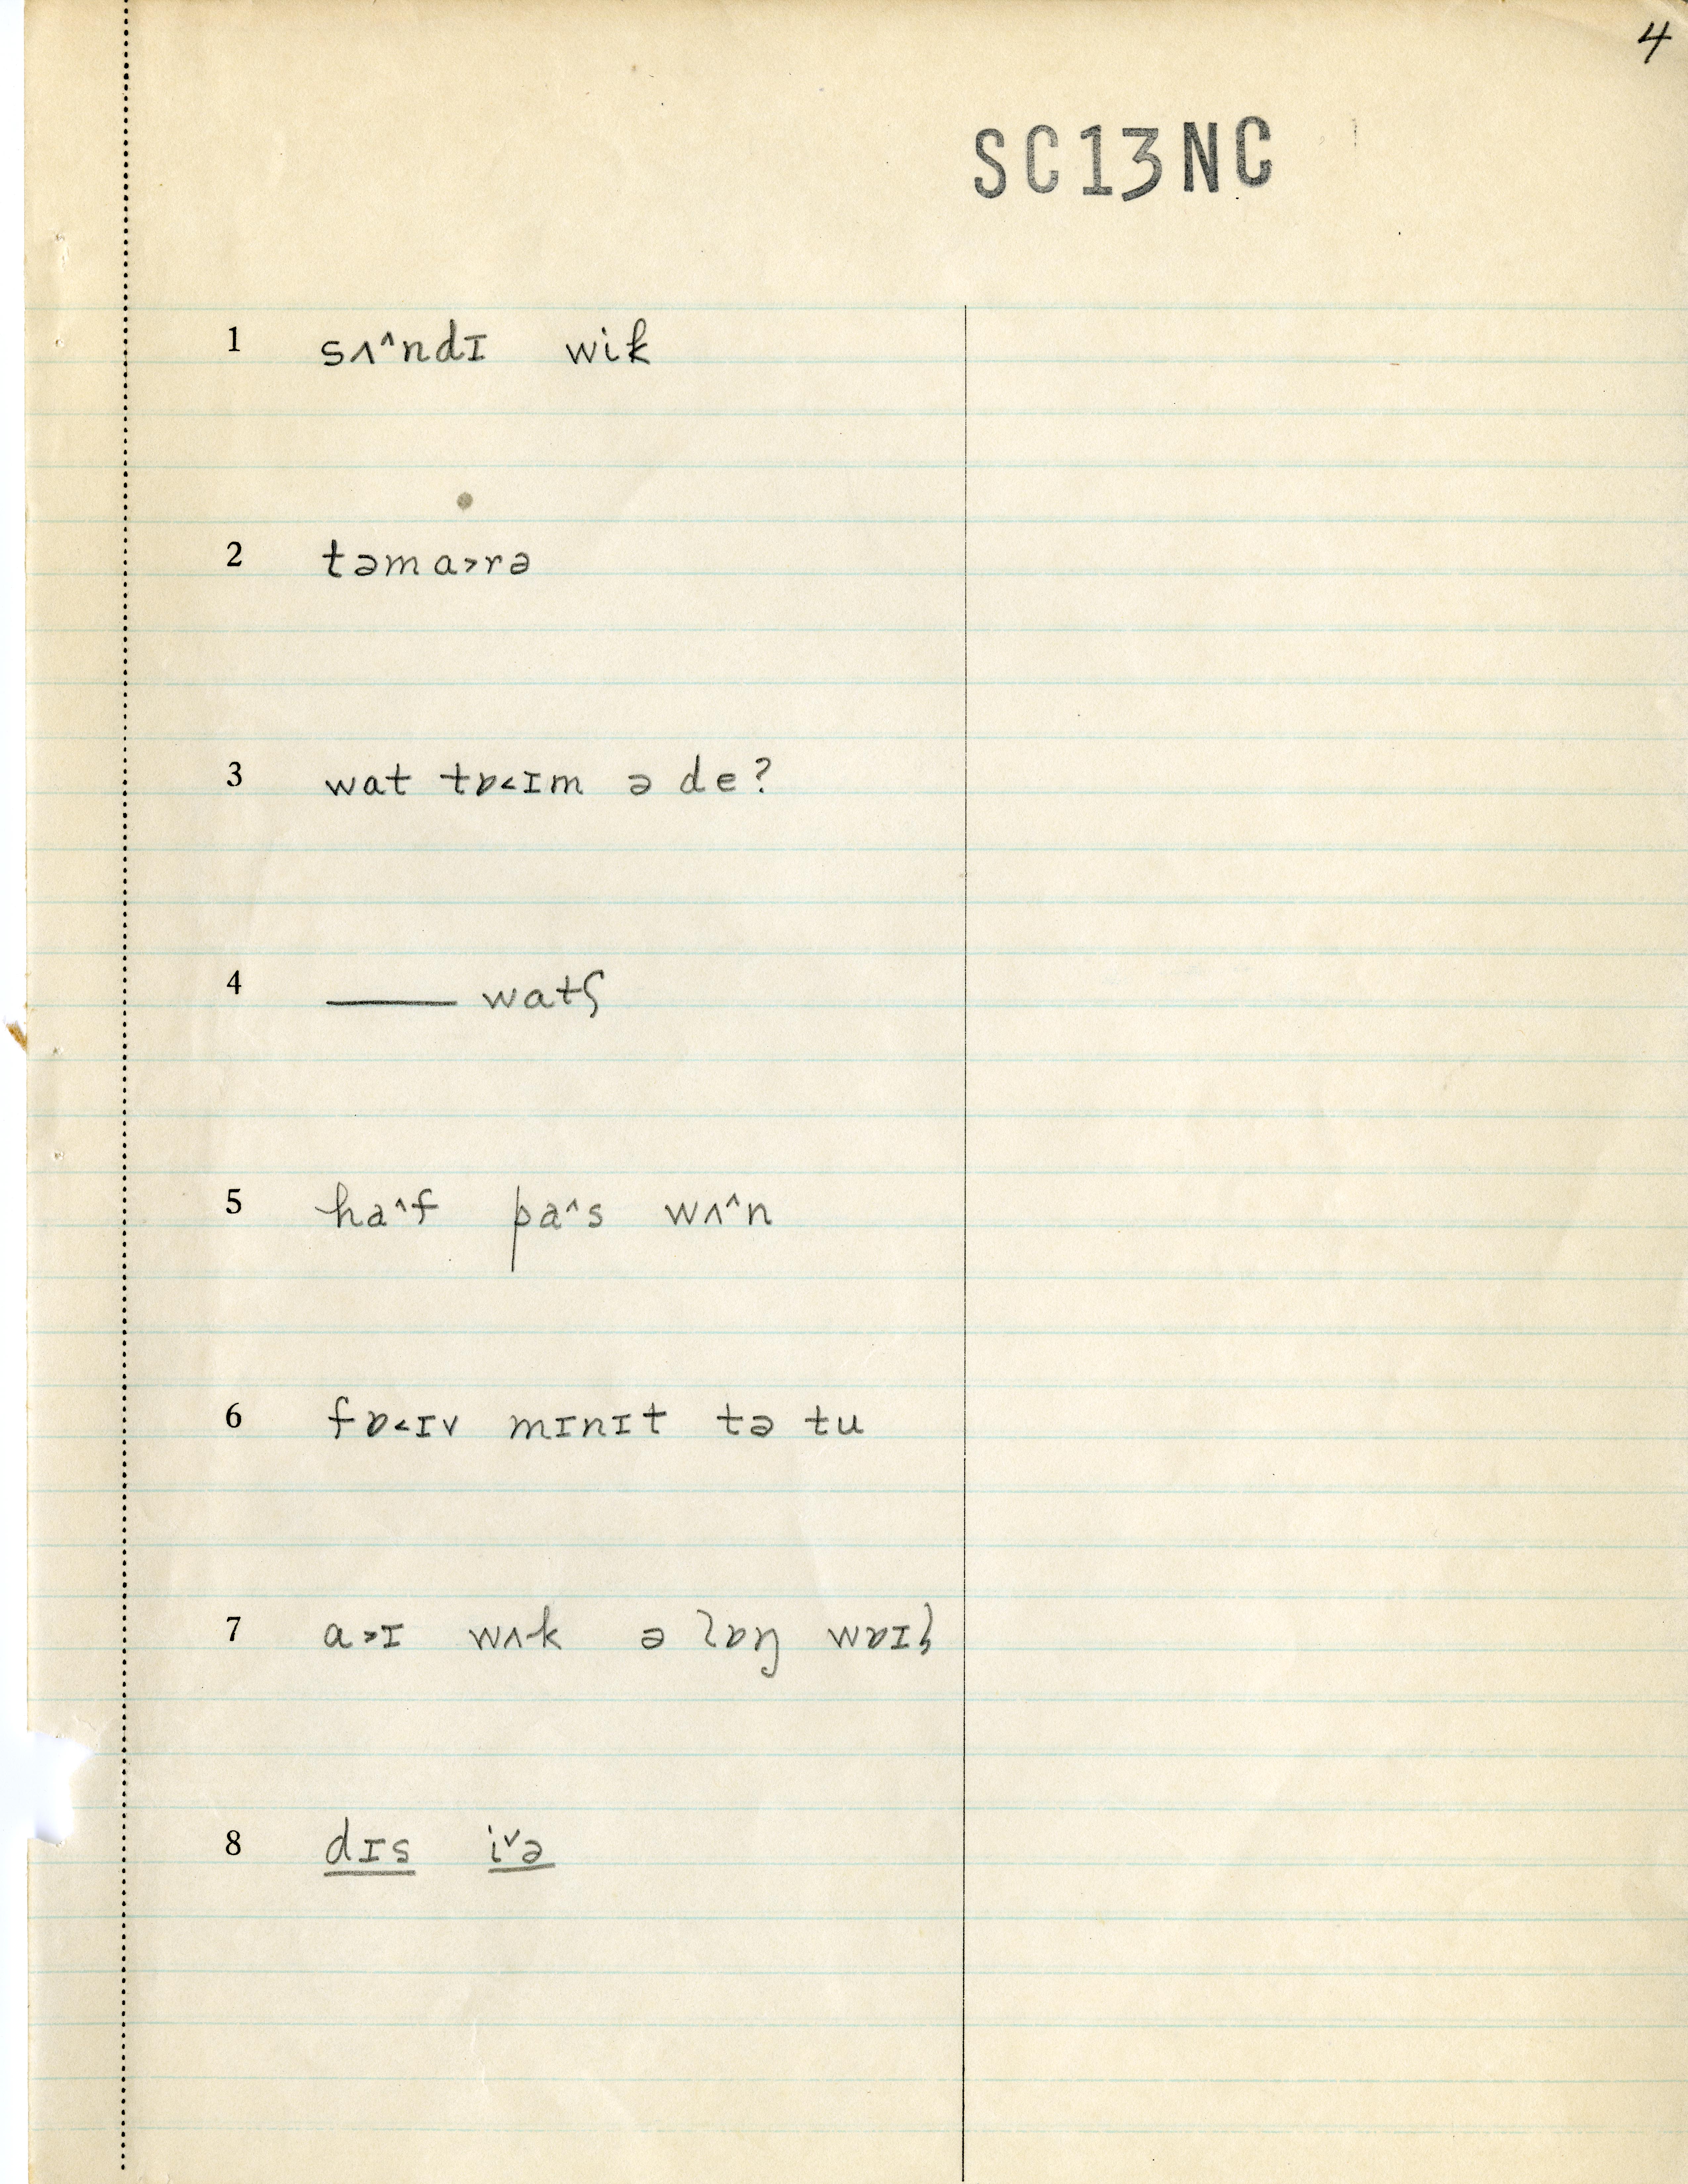 4
SC13NC
1 sʌ^ndɪ wik
2 təma˃rə
3 wat tɒ˂ɪm ə de?
4 —— watʃ
5 ha^f pa^s wʌ^n
6 fɒ˂ɪv mɪnɪt tə tu
7 a˃ɪ wʌk ə lɒŋ wɒɪl
8 dɪs i˅ə